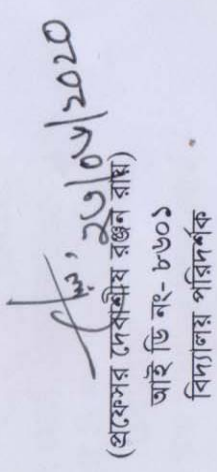 ২৬/০৮/২০২০
(প্রফেসর দেবাশীষ রঞ্জন রায়)
আই ডি নং- ৮৬০১
বিদ্যালয় পরিদর্শক